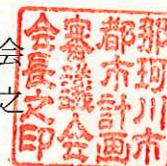 会
之
那珂川市
都市計画
審議会
会長之印